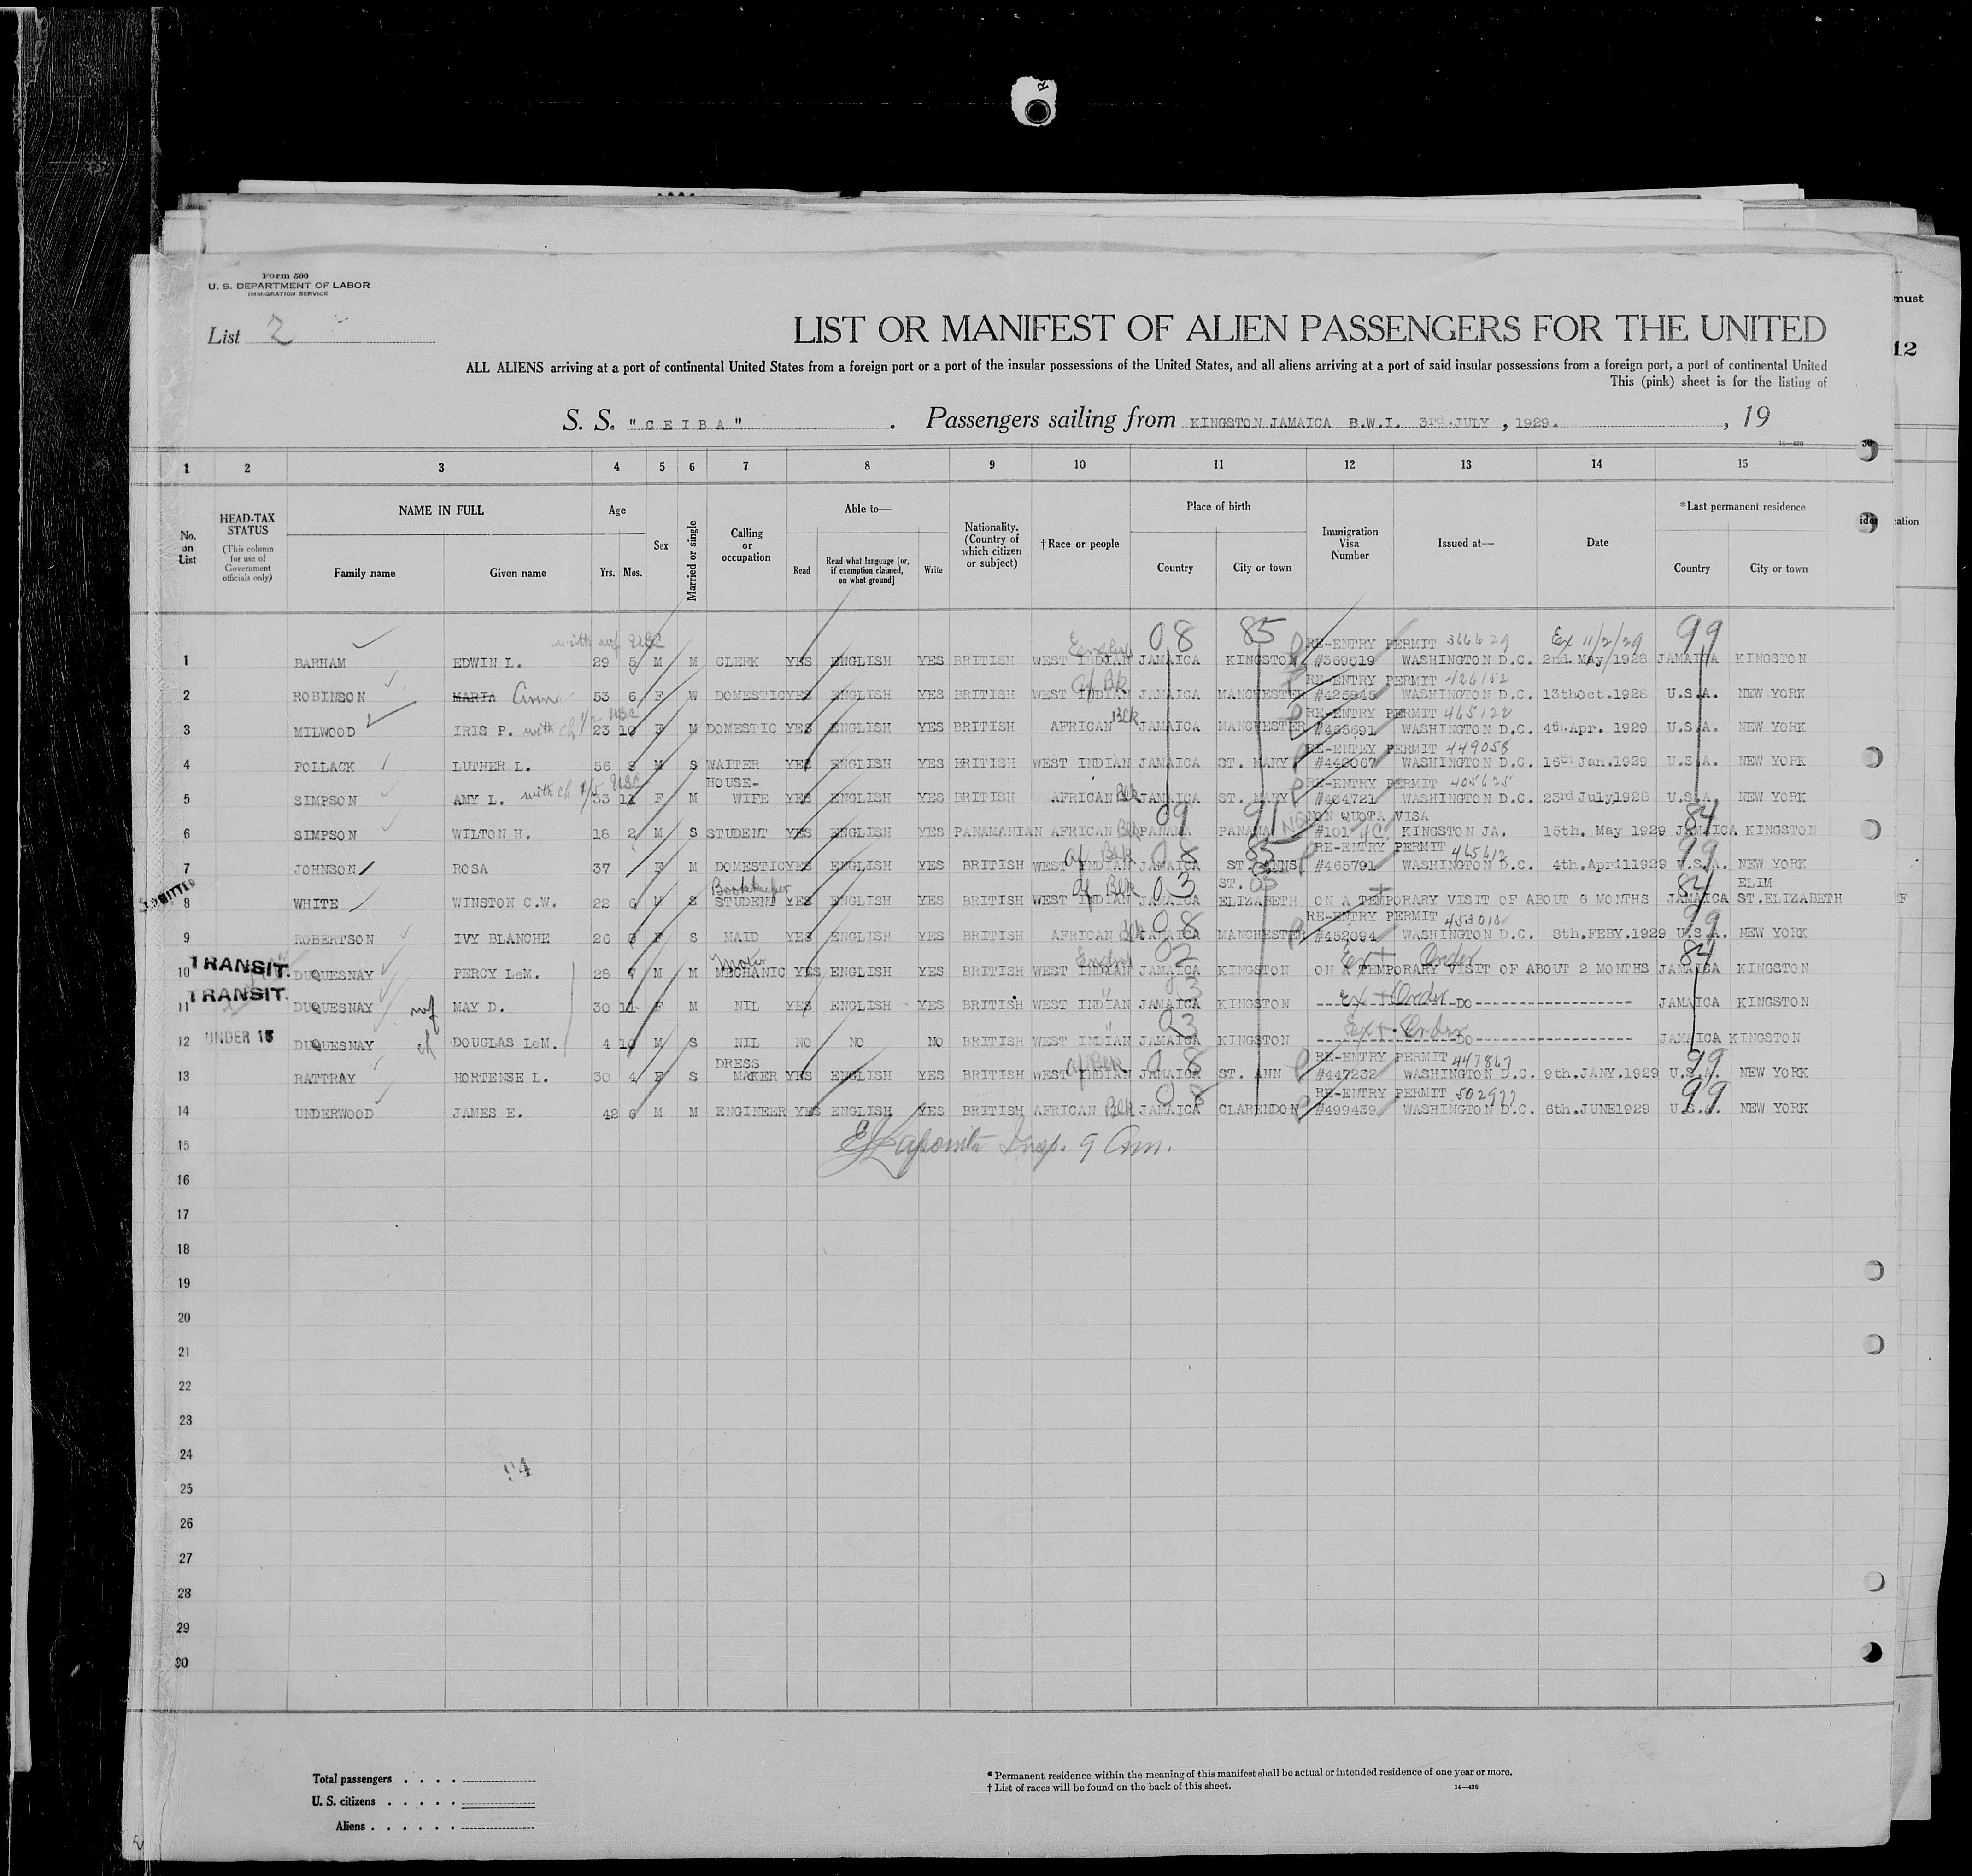 must
12
Form 500
U. S. DEPARTMENT OF LABOR
IMMIGRATION SERVICE
List 2
LIST OR MANIFEST OF ALIEN PASSENGERS FOR THE UNITED
ALL ALIENS arriving at a port of continental United States from a foreign port or a port of the insular possessions of the United States, and all aliens arriving at a port of said insular possessions from a foreign port, a port of continental United
This (pink) sheet is for the listing of
S. S. "CEIBA" . Passengers sailing from KINGSTON JAMAICA B.W.I. 3rd.JULY , 1929. , 19
14—430
1 2 3 4 5 6 7 8 9 10 11 12 13 14 15
No. on List
HEAD-TAX STATUS
(This column for use of Government officials only)
NAME IN FULL
Family name Given name
Age
Yrs. Mos.
Sex
Married or single
Calling or occupation
Able to—
Read
Read what language [or, if exemption claimed, on what ground]
Write
Nationality. (Country of which citizen or subject)
†Race or people
Place of birth
Country City or town
Immigration Visa Number
Issued at—
Date
*Last permanent residence
Country City or town
with wf USC English 08 85 RE-ENTRY PERMIT 366629 Ex 11/2/29 99
1 BARHAM EDWIN L. 29 5 M M CLERK YES ENGLISH YES BRITISH WEST INDIAN JAMAICA KINGSTON #369019 WASHINGTON D.C. 2nd. May/1928 JAMAICA KINGSTON
Af Bk RE-ENTRY PERMIT 426152
2 ROBINSON MARIA Anna 53 6 F W DOMESTIC YES ENGLISH YES BRITISH WEST INDIAN JAMAICA MANCHESTER #425845 WASHINGTON D.C. 13thOct.1928 U.S.A. NEW YORK
USC Blk RE-ENTRY PERMIT 465122
3 MILWOOD IRIS P. with ch 23 10 F M DOMESTIC YES ENGLISH YES BRITISH AFRICAN JAMAICA MANCHESTER #465691 WASHINGTON D.C. 4th.Apr. 1929 U.S.A. NEW YORK
RE-ENTRY PERMIT 449058
4 POLLACK LUTHER L. 56 M S WAITER YES ENGLISH YES BRITISH WEST INDIAN JAMAICA ST. MARY #448067 WASHINGTON D.C. 16th Jan.1929 U.S.A. NEW YORK
with ch USC HOUSE- RE-ENTRY PERMIT 405625
5 SIMPSON AMY L. 33 11 F M WIFE YES ENGLISH YES BRITISH AFRICAN Blk JAMAICA ST. MARY #404721 WASHINGTON D.C. 23rd July1928 U.S.A. NEW YORK
09 91 NON QUOTA VISA 84
6 SIMPSON WILTON H. 18 2 M S STUDENT YES ENGLISH YES PANAMANIAN AFRICAN Blk PANAMA PANAMA #101 4C. KINGSTON JA. 15th. May 1929 JAMAICA KINGSTON
Af Blk 08 85 RE-ENTRY PERMIT 465612 99
7 JOHNSON ROSA 37 F M DOMESTIC YES ENGLISH YES BRITISH WEST INDIAN JAMAICA ST. ANNS #465791 WASHINGTON D.C. 4th.April1929 U.S.A. NEW YORK
Bookkeeper Af Blk 03 ST. 85 84 ELIM
8 WHITE WINSTON C.W. 22 6 M S STUDENT YES ENGLISH YES BRITISH WEST INDIAN JAMAICA ELIZABETH ON A TEMPORARY VISIT OF ABOUT 6 MONTHS JAMAICA ST.ELIZABETH
08 RE-ENTRY PERMIT 453010 99
9 ROBERTSON IVY BLANCHE 26 F S MAID YES ENGLISH YES BRITISH AFRICAN Blk JAMAICA MANCHESTER #452094 WASHINGTON D.C. 8th.FEBY.1929 U.S.A. NEW YORK
TRANSIT. Motor English 02 Ex + Order 84
10 DUQUESNAY PERCY LeM. 28 7 M M MECHANIC YES ENGLISH YES BRITISH WEST INDIAN JAMAICA KINGSTON ON A TEMPORARY VISIT OF ABOUT 2 MONTHS JAMAICA KINGSTON
TRANSIT. " 3 Ex + Order
11 DUQUESNAY wf MAY D. 30 11 F M NIL YES ENGLISH YES BRITISH WEST INDIAN JAMAICA KINGSTON DO JAMAICA KINGSTON
UNDER 16 " 03 Ex + Order
12 DUQUESNAY ch DOUGLAS LeM. 4 10 M S NIL NO NO NO BRITISH WEST INDIAN JAMAICA KINGSTON DO JAMAICA KINGSTON
DRESS Af Blk 08 RE-ENTRY PERMIT 447867 99
13 RATTRAY HORTENSE L. 30 4 F S MAKER YES ENGLISH YES BRITISH WEST INDIAN JAMAICA ST. ANN #447232 WASHINGTON D.C. 9th.JANY.1929 U.S.A. NEW YORK
08 RE-ENTRY PERMIT 502977 99
14 UNDERWOOD JAMES E. 42 6 M M ENGINEER YES ENGLISH YES BRITISH AFRICAN Blk JAMAICA CLARENDON #499439 WASHINGTON D.C. 6th.JUNE1929 U.S. NEW YORK
15 Insp. 9 Am.
16
17
18
19
20
21
22
23
24
94
25
26
27
28
29
30
Total passengers . . . .
U. S. citizens . . . . .
Aliens . . . . . .
* Permanent residence within the meaning of this manifest shall be actual or intended residence of one year or more.
† List of races will be found on the back of this sheet. 14—430